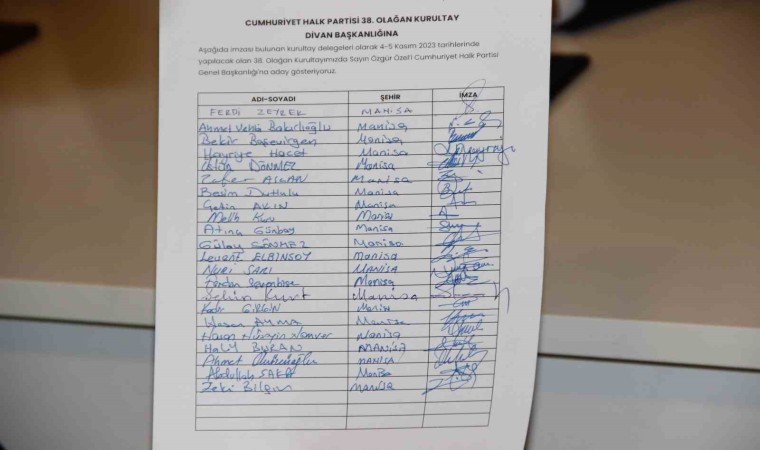 CUMHURİYET HALK PARTİSİ 38. OLAĞAN KURULTAY
DİVAN BAŞKANLIĞINA
Aşağıda imzası bulunan kurultay delegeleri olarak 4-5 Kasım 2023 tarihlerinde
yapılacak olan 38. Olağan Kurultayımızda Sayın Özgür Özel'i Cumhuriyet Halk Partisi
Genel Başkanlığı'na aday gösteriyoruz.
ADI-SOYADI ŞEHİR İMZA
FERDİ ZEYREK MANİSA
Ahmet Vehbi Bakırlıoğlu Manisa
Bekir Başevirgen Manisa
Hayriye Hacet Manisa
DÖNMEZ Manisa
Zafer ALKAN Manisa
Besim Dutlulu Manisa
Çetin AKIN Manisa
Melih Manisa
Günbay Manisa
Gülay SÖNMAZ Manisa
Levent ELBİNSOY Manisa
NURİ SARI MANİSA
Manisa
Selin Kurt Manisa
Kadir GİRGİN Manisa
Hasan AYMA Manisa
Hasan Hüseyin Manisa
HALİL BURAN MANİSA
Ahmet MANİSA
Abdullah Manisa
Zeki Bilgin Manisa